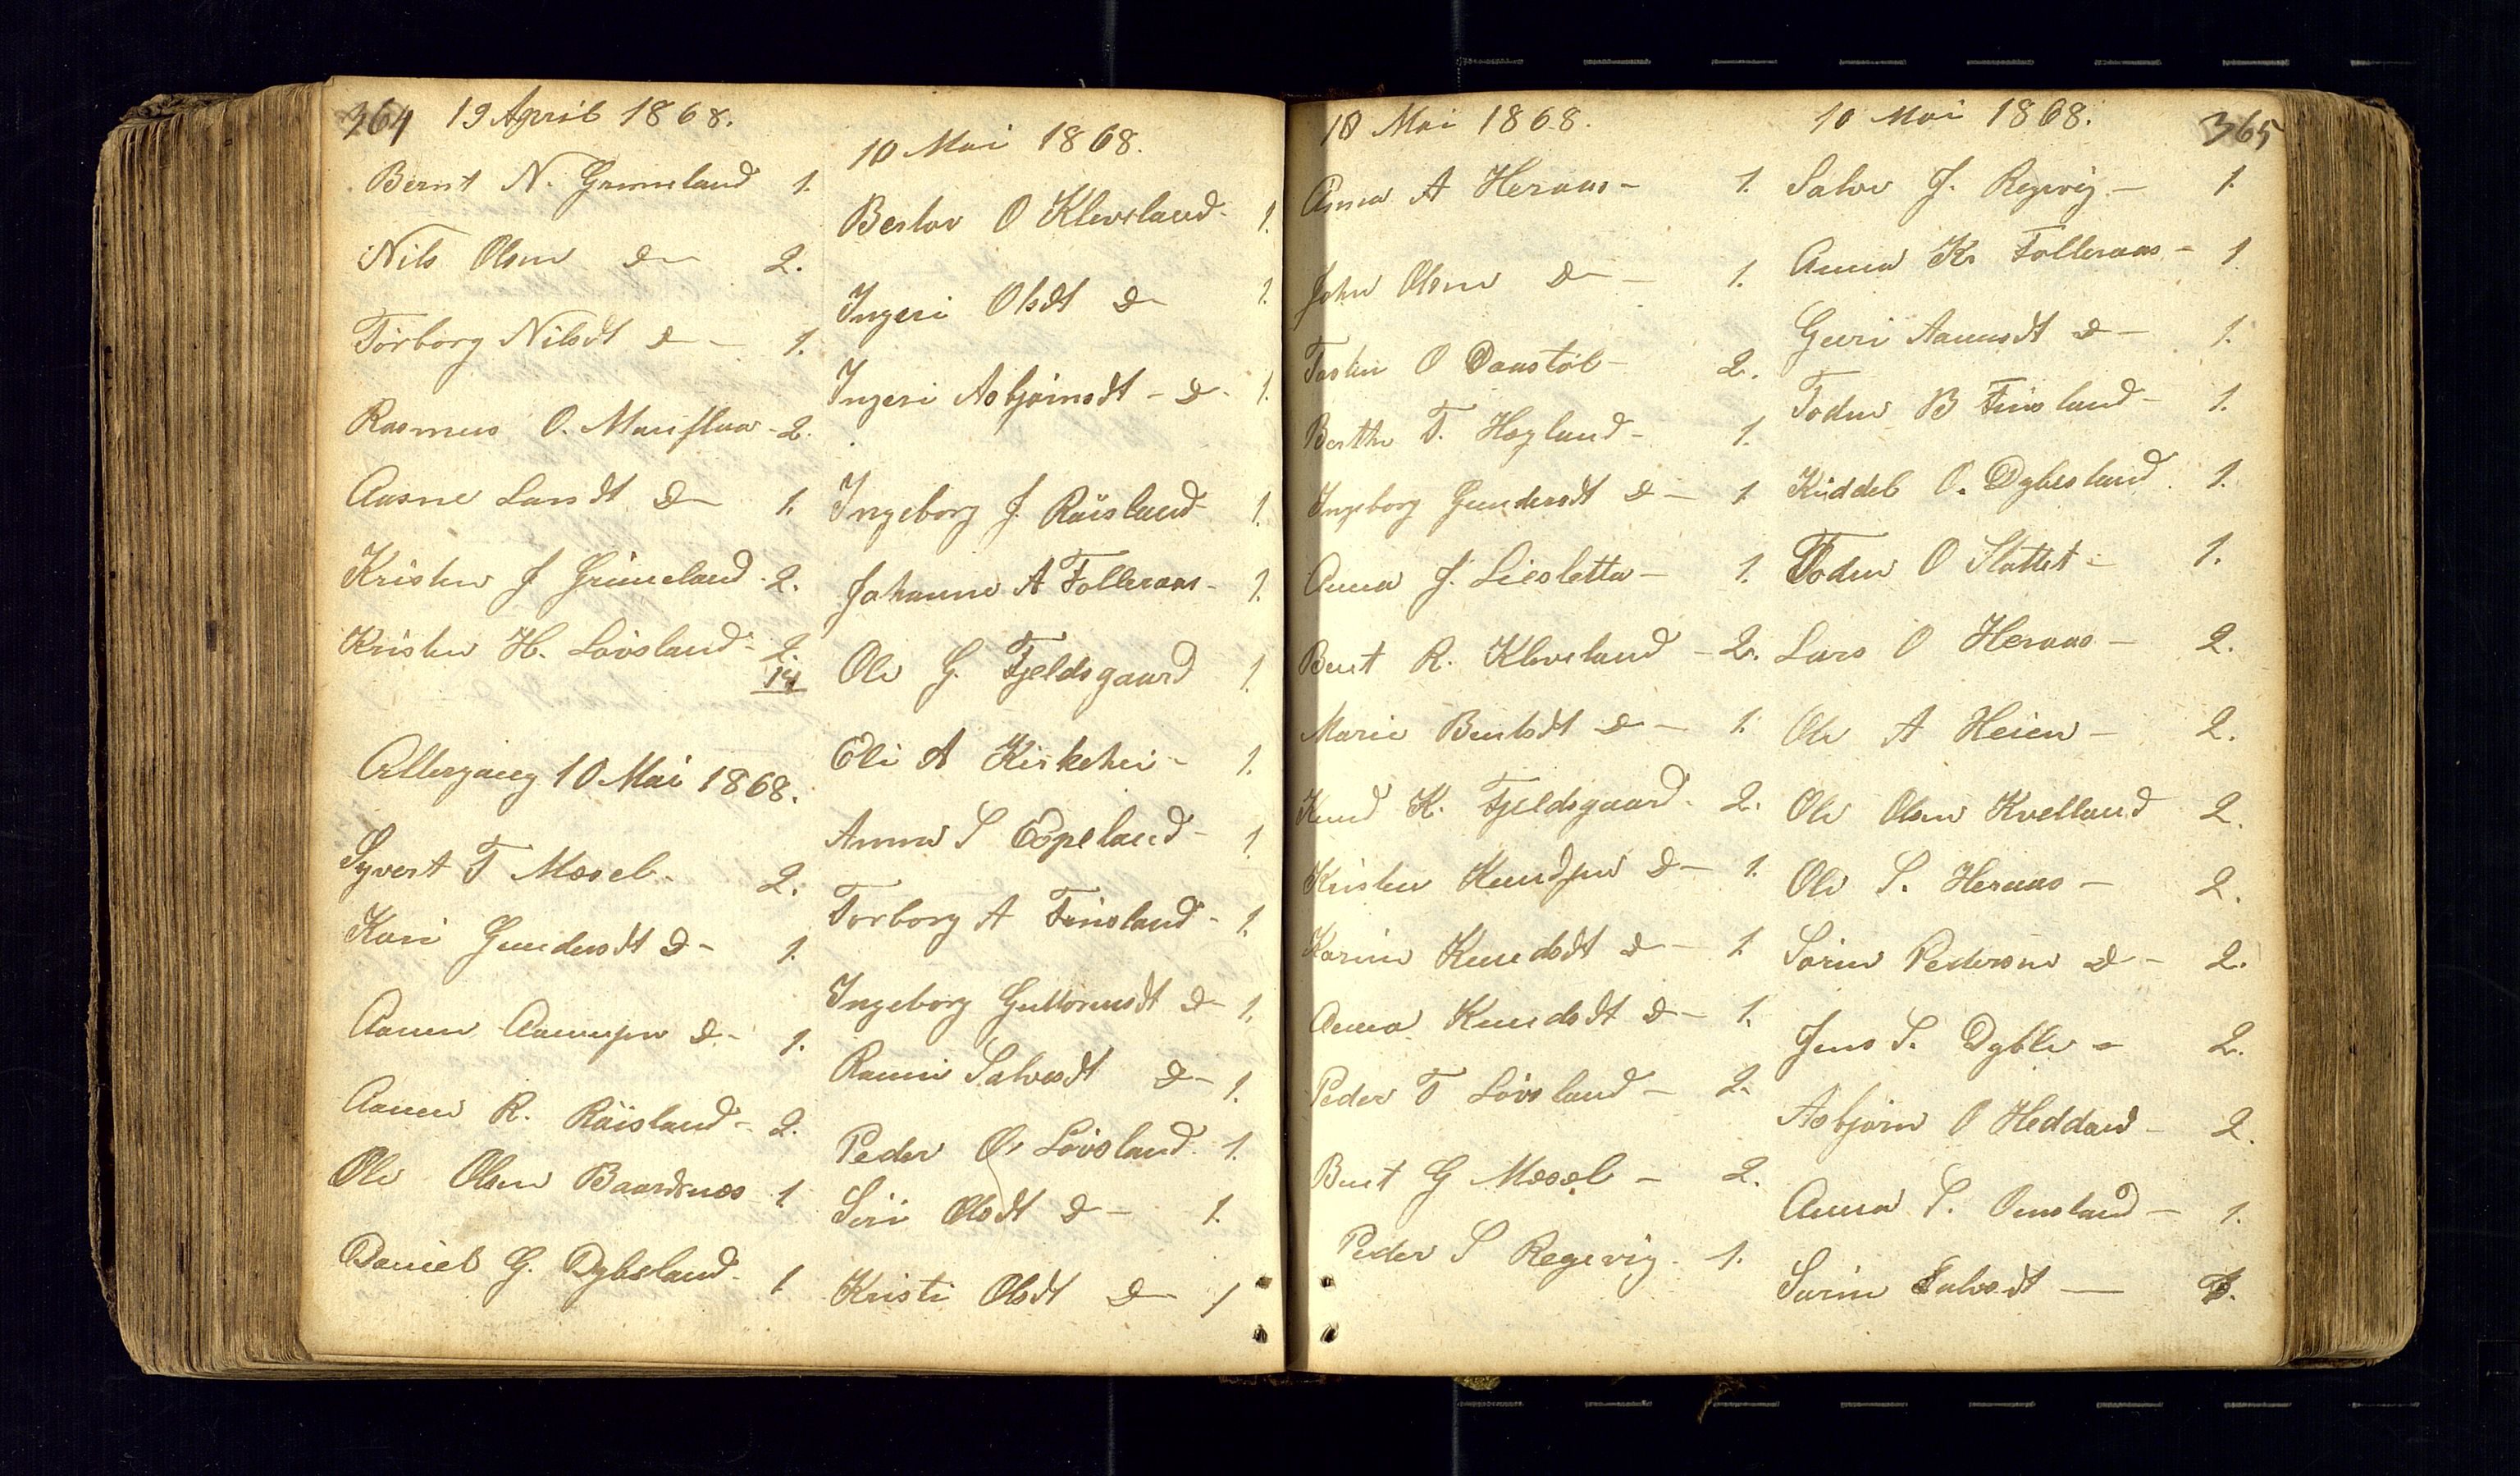 364 19 April 1868.
Bernt N. Grimeland 1.
Nils Olsen d— 2.
Torborg Nilsdt d— 1.
Rasmus O. Mauflaa - 2.
Aasne Larsdt d— 1.
Kristen J Grimeland - 2.
Kristen H. Lövsland - 2.
14
Altergang 10 Mai 1868.
Syvert T Mosel - 2.
Kari Gundersdt d— 1.
Aanen Aanensen d— 1.
Aanen R. Röisland - 2.
Ole Olsen Baardsnes 1
Daniel G. Dybesland - 1
10 Mai 1868.
Berlov O Kleveland - 1.
Ingeri Olsdt d— 1.
Ingeri Asbjörnsdt - d— 1.
Ingeborg J. Röisland 1.
Johanne A Folleraas - 1.
Ole G. Fjeldsgaard 1.
Eli A Kirkehei - 1.
Anna S Eopeland - 1.
Torborg A Finsland - 1.
Ingeborg Guttormsdt d— 1.
Rannei Salvesdt d— 1.
Peder O. Lövsland - 1.
Siri Olsdt d— 1.
Kristi Olsdt d— 1
10 Mai 1868.
Anna A Heraas - 1.
John Olsen d— 1.
Tosten O Daastöl - 2.
Berthe T. Högland - 1.
Ingeborg Gundersdt d— 1
Anna J. Liesletta - 1.
Bent R. Kleveland - 2.
Marie Bentsdt d— 1.
Knud K. Fjeldsgaard - 2.
Kristen Knudsen d— 1.
Karine Knudsdt d— 1
Anna Knudsdt d— 1.
Peder T Lövsland - 2.
Bent G Mosel - 2.
Peder S Regevig - 1.
10 Mai 1868. 365
Salve J. Regevig - 1.
Anna K. Folleraas - 1.
Guri Aanensdt d— 1.
Todne B Finsland - 1.
Kiddel O. Dybesland 1.
Todne O Slattet - 1.
Lars O Heraas - 2.
Ole A Heien - 2.
Ole Olsen Kvelland 2.
Ole S. Heraas - 2.
Sören Pedersen d— 2.
Jens S. Dyble - 2.
Asbjörn O Heddan - 2.
Anna S. Omsland - 1.
Sorine Salvesdt — 1.